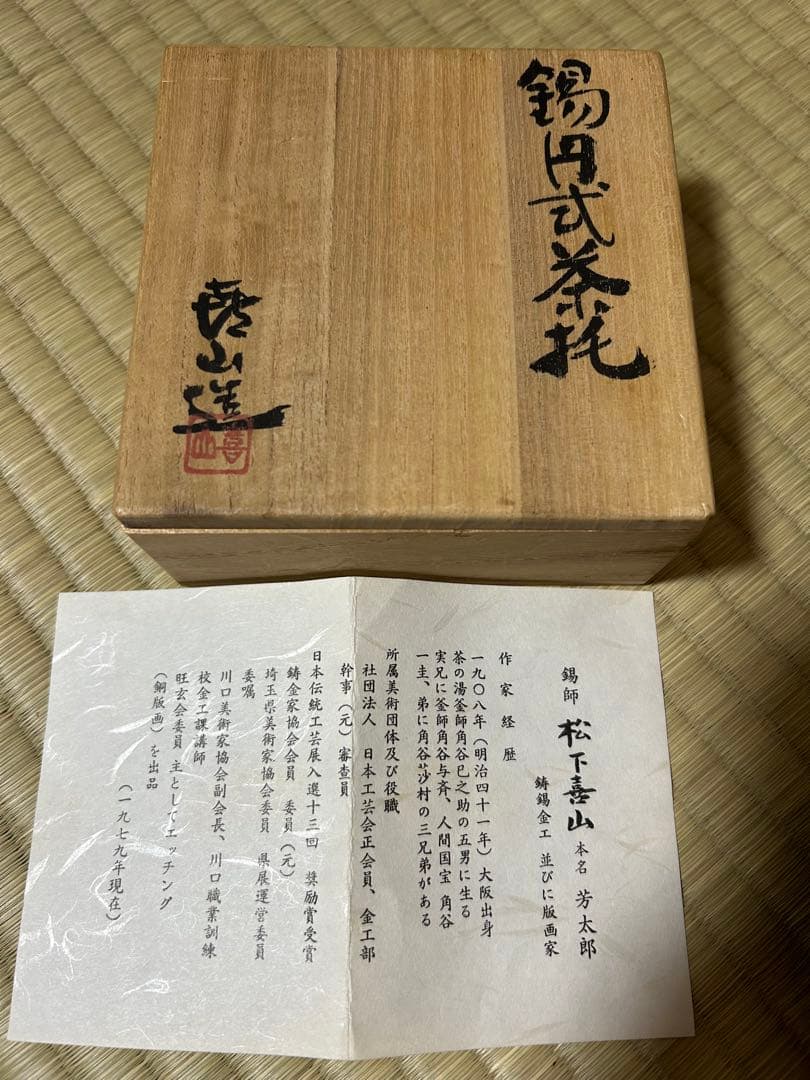 錫円式茶托
喜山造
喜山
錫師 松下喜山 本名 芳太郎
鋳錫金工 並びに版画家
作家経歴
一九〇八年（明治四十一年）大阪出身
茶の湯釜師角谷巳之助の五男に生る
実兄に釜師角谷与斉、人間国宝 角谷
一圭、弟に角谷莎村の三兄弟がある
所属美術団体及び役職
社団法人 日本工芸会正会員、金工部
幹事（元）審査員
日本伝統工芸展入選十三回 奨励賞受賞
鋳金家協会会員 委員（元）
埼玉県美術家協会委員 県展運営委員
委嘱
川口美術家協会副会長、川口職業訓練
校金工課講師
旺玄会委員 主としてエッチング
（銅版画）を出品
（一九七九年現在）